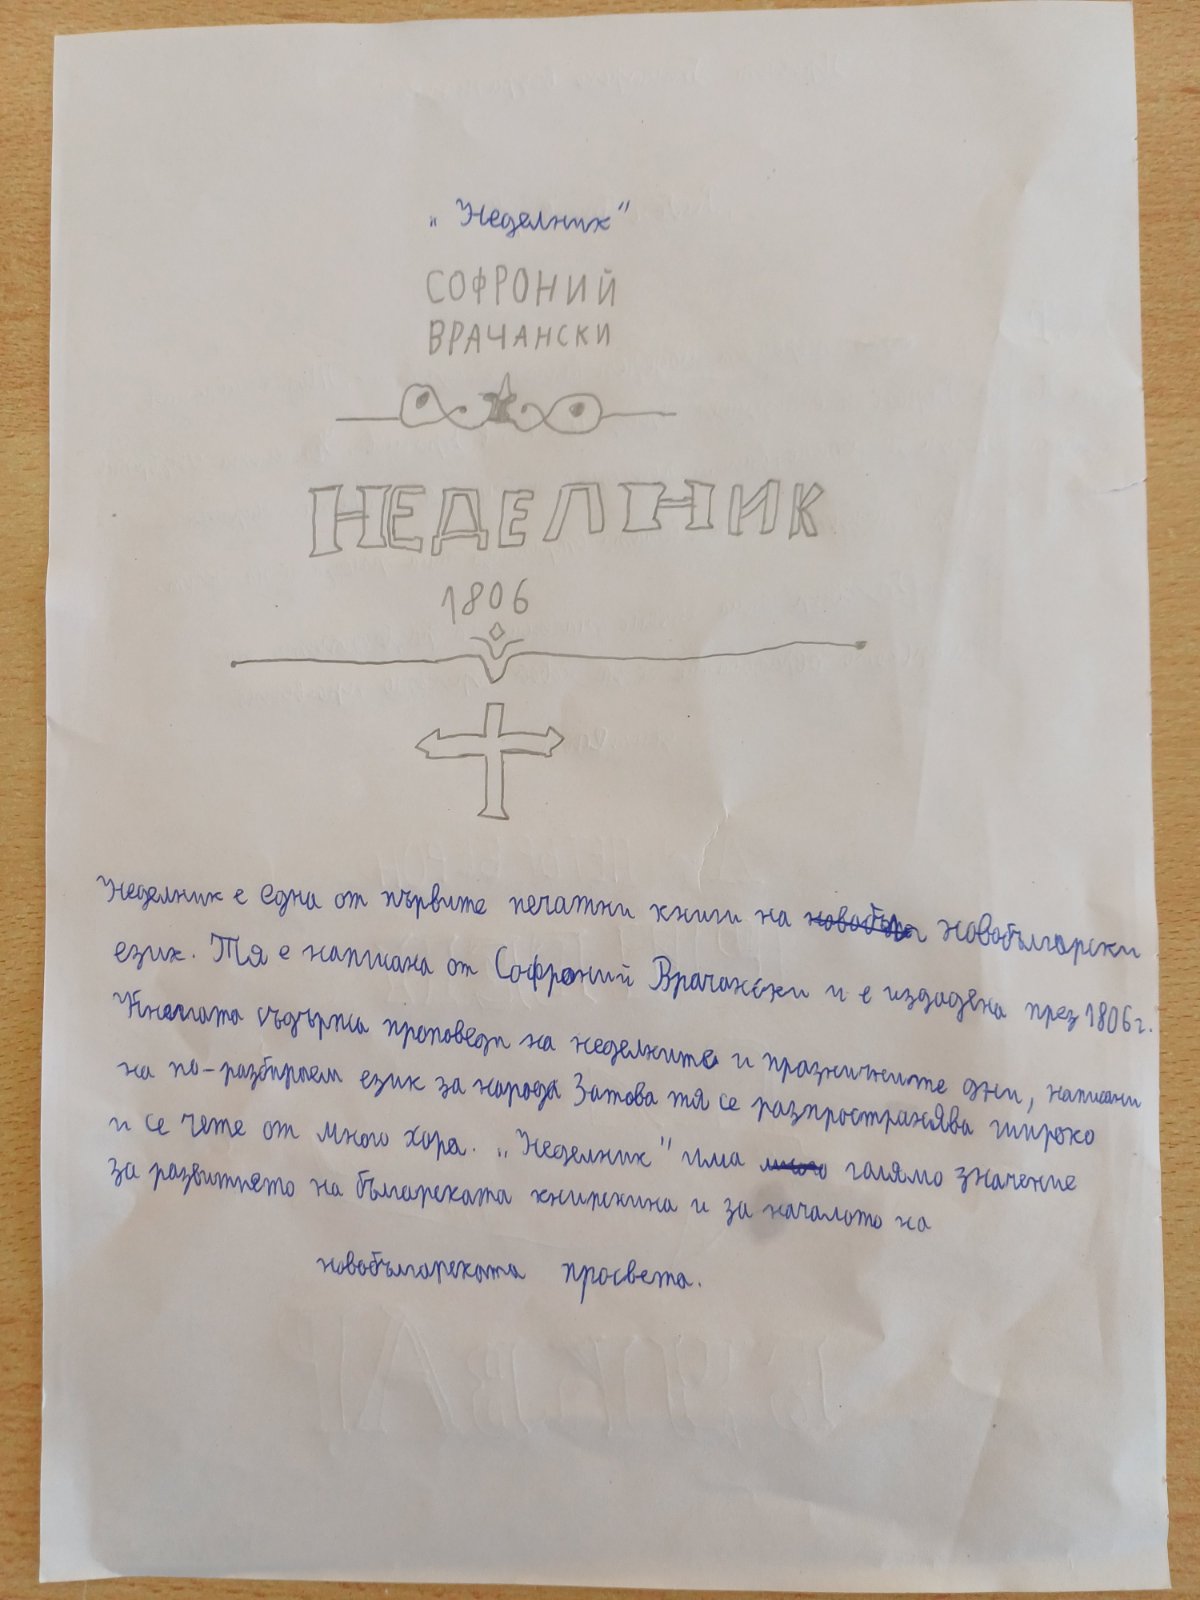 „Неделник“
СОФРОНИЙ
ВРАЧАНСКИ
НЕДЕЛНИК
1806
Неделник е една от първите печатни книги на новобългарски
език. Тя е написана от Софроний Врачански и е издадена през 1806г.
Книгата съдържа проповеди на неделните и празничните дни, написани
на по-разбираем език за народа Затова тя се разпространява широко
и се чете от много хора. „Неделник“ има голямо значение
за развитието на българската книжнина и за началото на
новобългарската просвета.